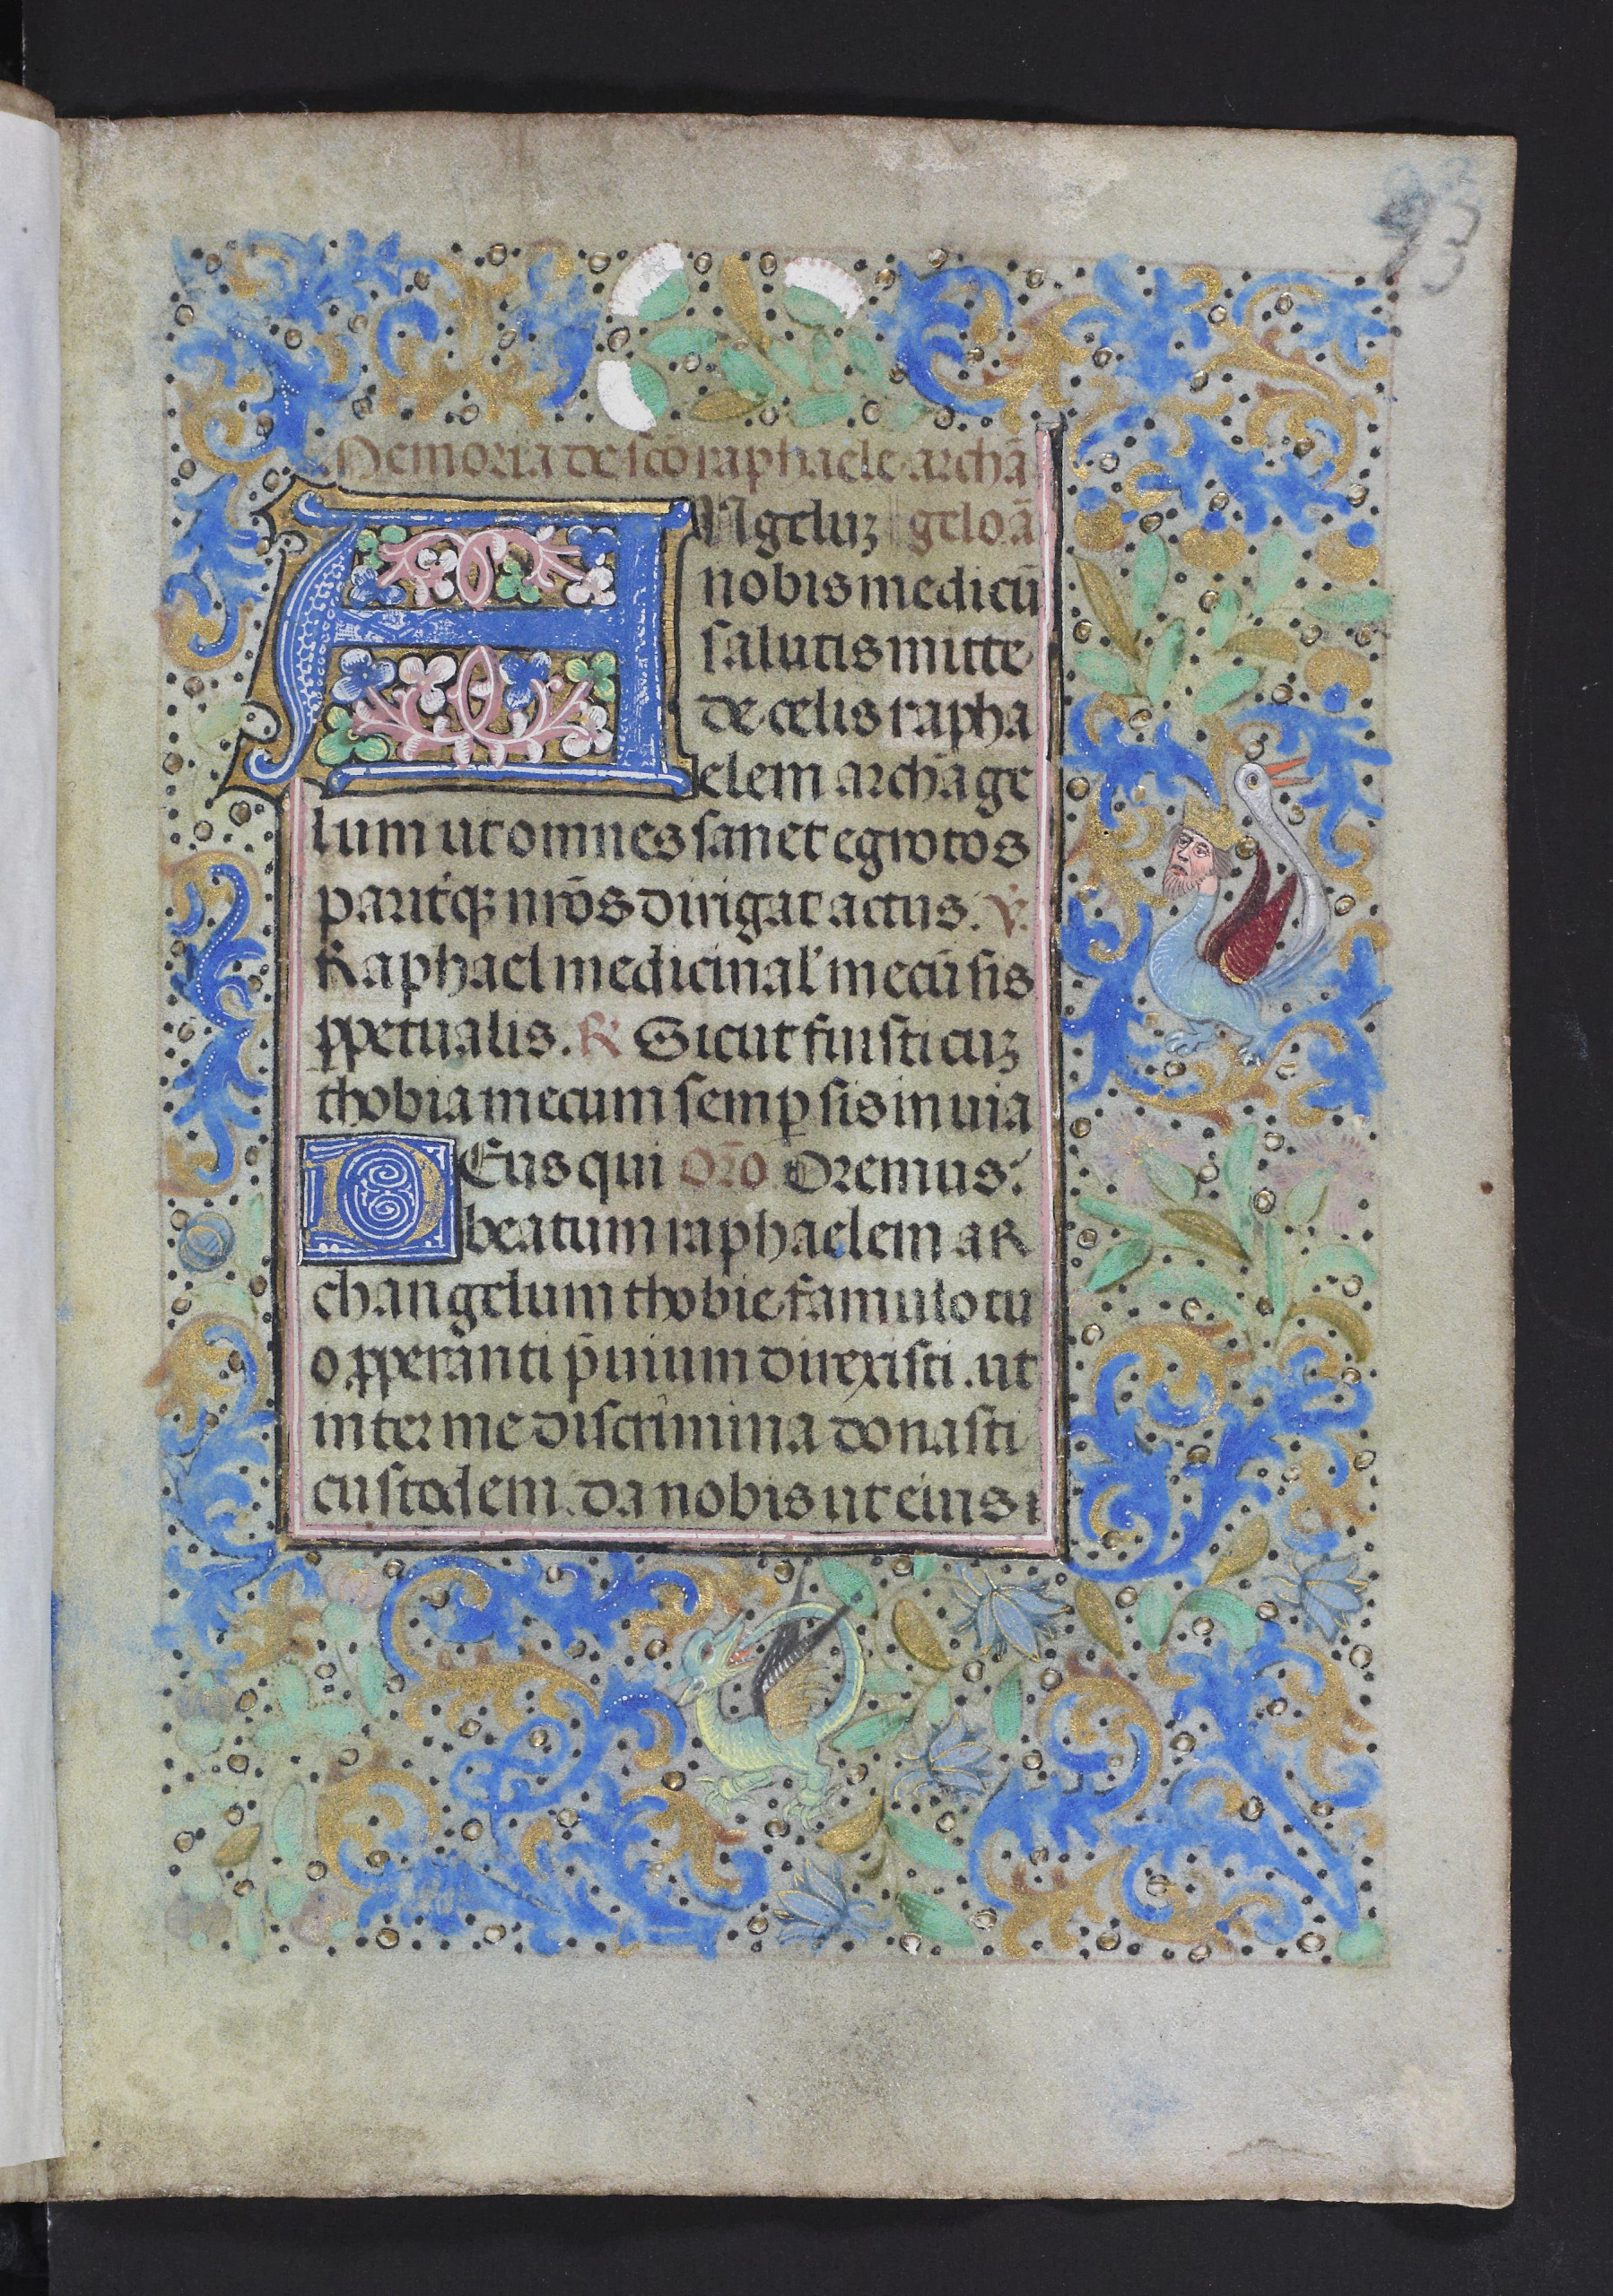 93
Memoria de sc̄o raphaele archā
ANgeluꝫ geloā
nobis medicū
salutis mitte
de celis rapha
elem archāge
lum ut omnes sanet egrotos
parit̓qꝫ nr̄os dirigat actus. ℣.
Raphael medicinal̓ mecū sis
ꝓpetualis. ℟ Sicut fuisti cuꝫ
thobia mecum semꝑ sis in uia
DEus qui Or̄o Oremus.
beatum raphaelem ar
changelum thobie famulo tu
o ꝓperanti p̄uium direxisti . ut
inter me discrimina donasti
custodem . da nobis ut eius